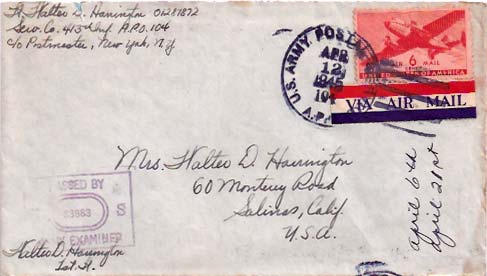 Lt. Walter D. Harrington 01281872
Serv. Co. 413th Inf. A.P.O. 104
c/o Postmaster, New York, N.Y.
U.S. ARMY POSTAL
APR
12
1945
A.P.O.
6 MAIL
UNITED STATES OF AMERICA
VIA AIR MAIL
Mrs. Walter D. Harrington
60 Monterey Road
Salinas, Calif.
U.S.A.
PASSED BY
EXAMINER
Walter D. Harrington
1st Lt.
April 6th
April 21st